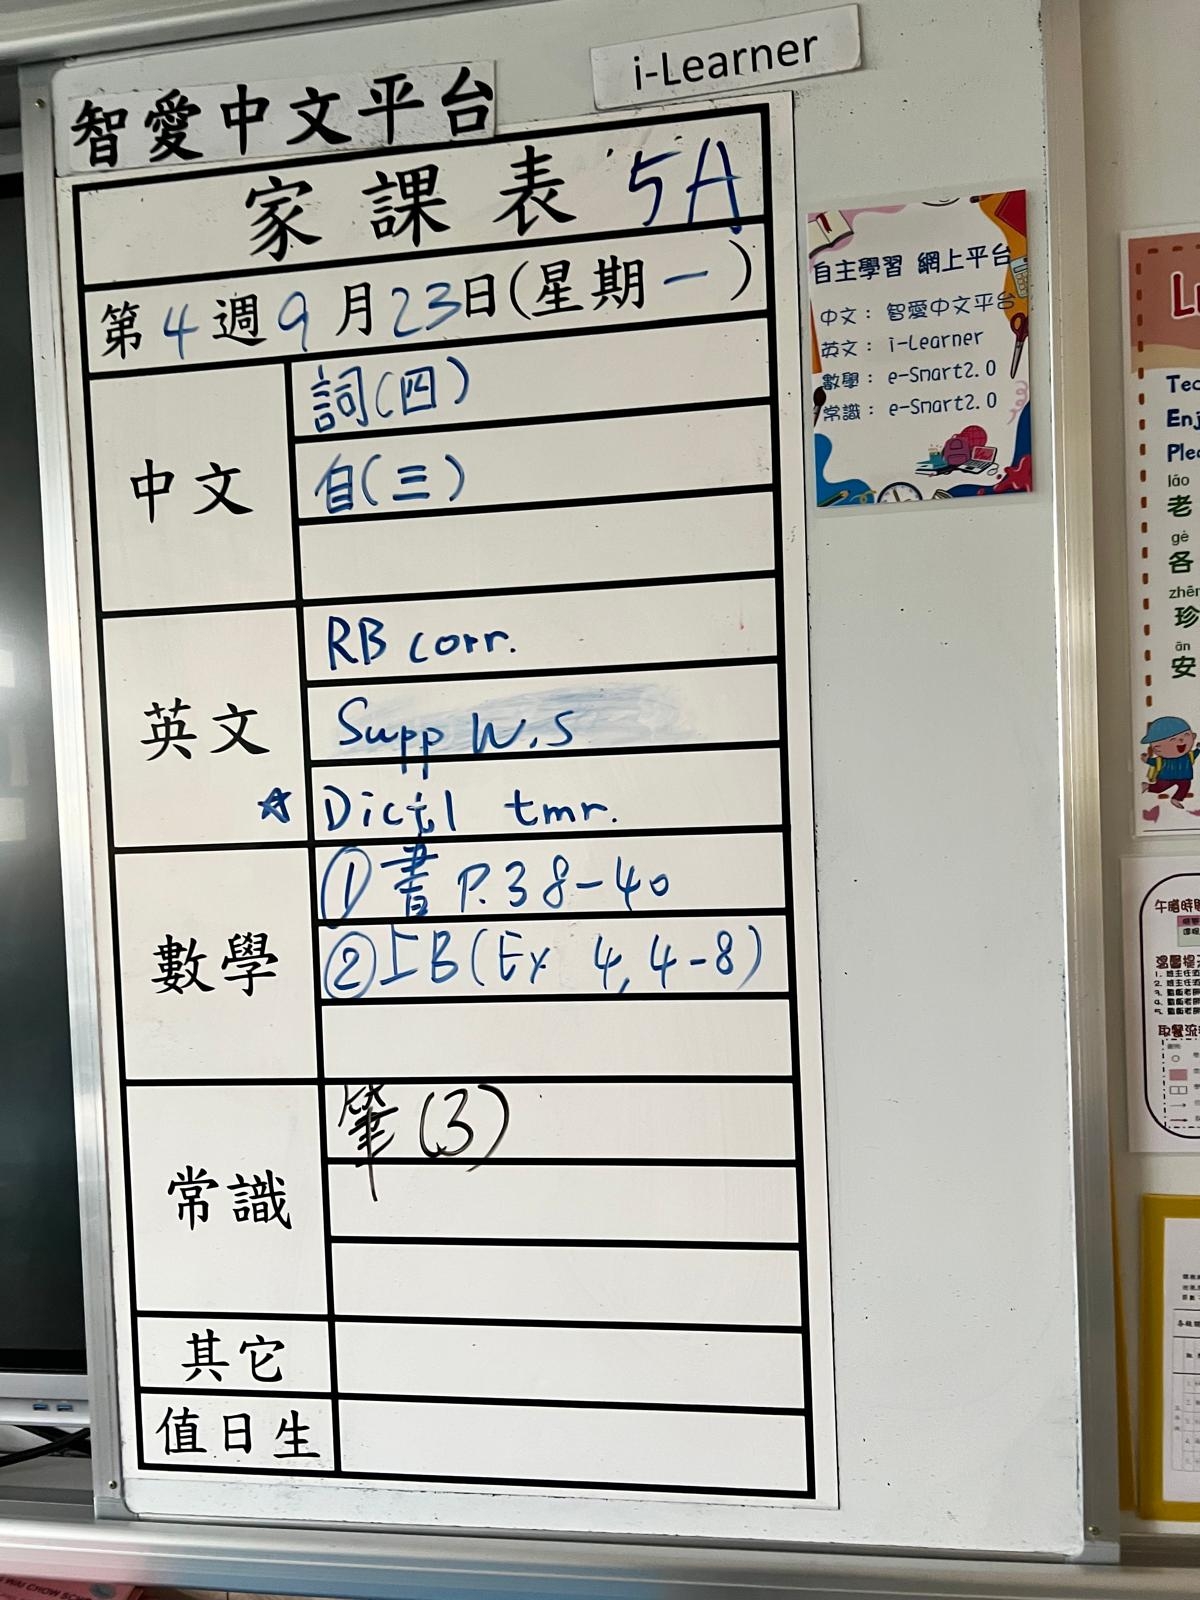 智愛中文平台
i-Learner
家課表 5A
第4週9月23日(星期一)
中文
詞(四)
自(三)
英文
RB corr.
Supp W.S
☆ Dict1 tmr.
數學
①書 P.38-40
②工B(Ex 4, 4-8)
常識
筆(3)
其它
值日生
自主學習 網上平台
中文：智愛中文平台
英文：i-Learner
數學：e-Smart2.0
常識：e-Smart2.0
láo
老
gè
各
珍
ān
安